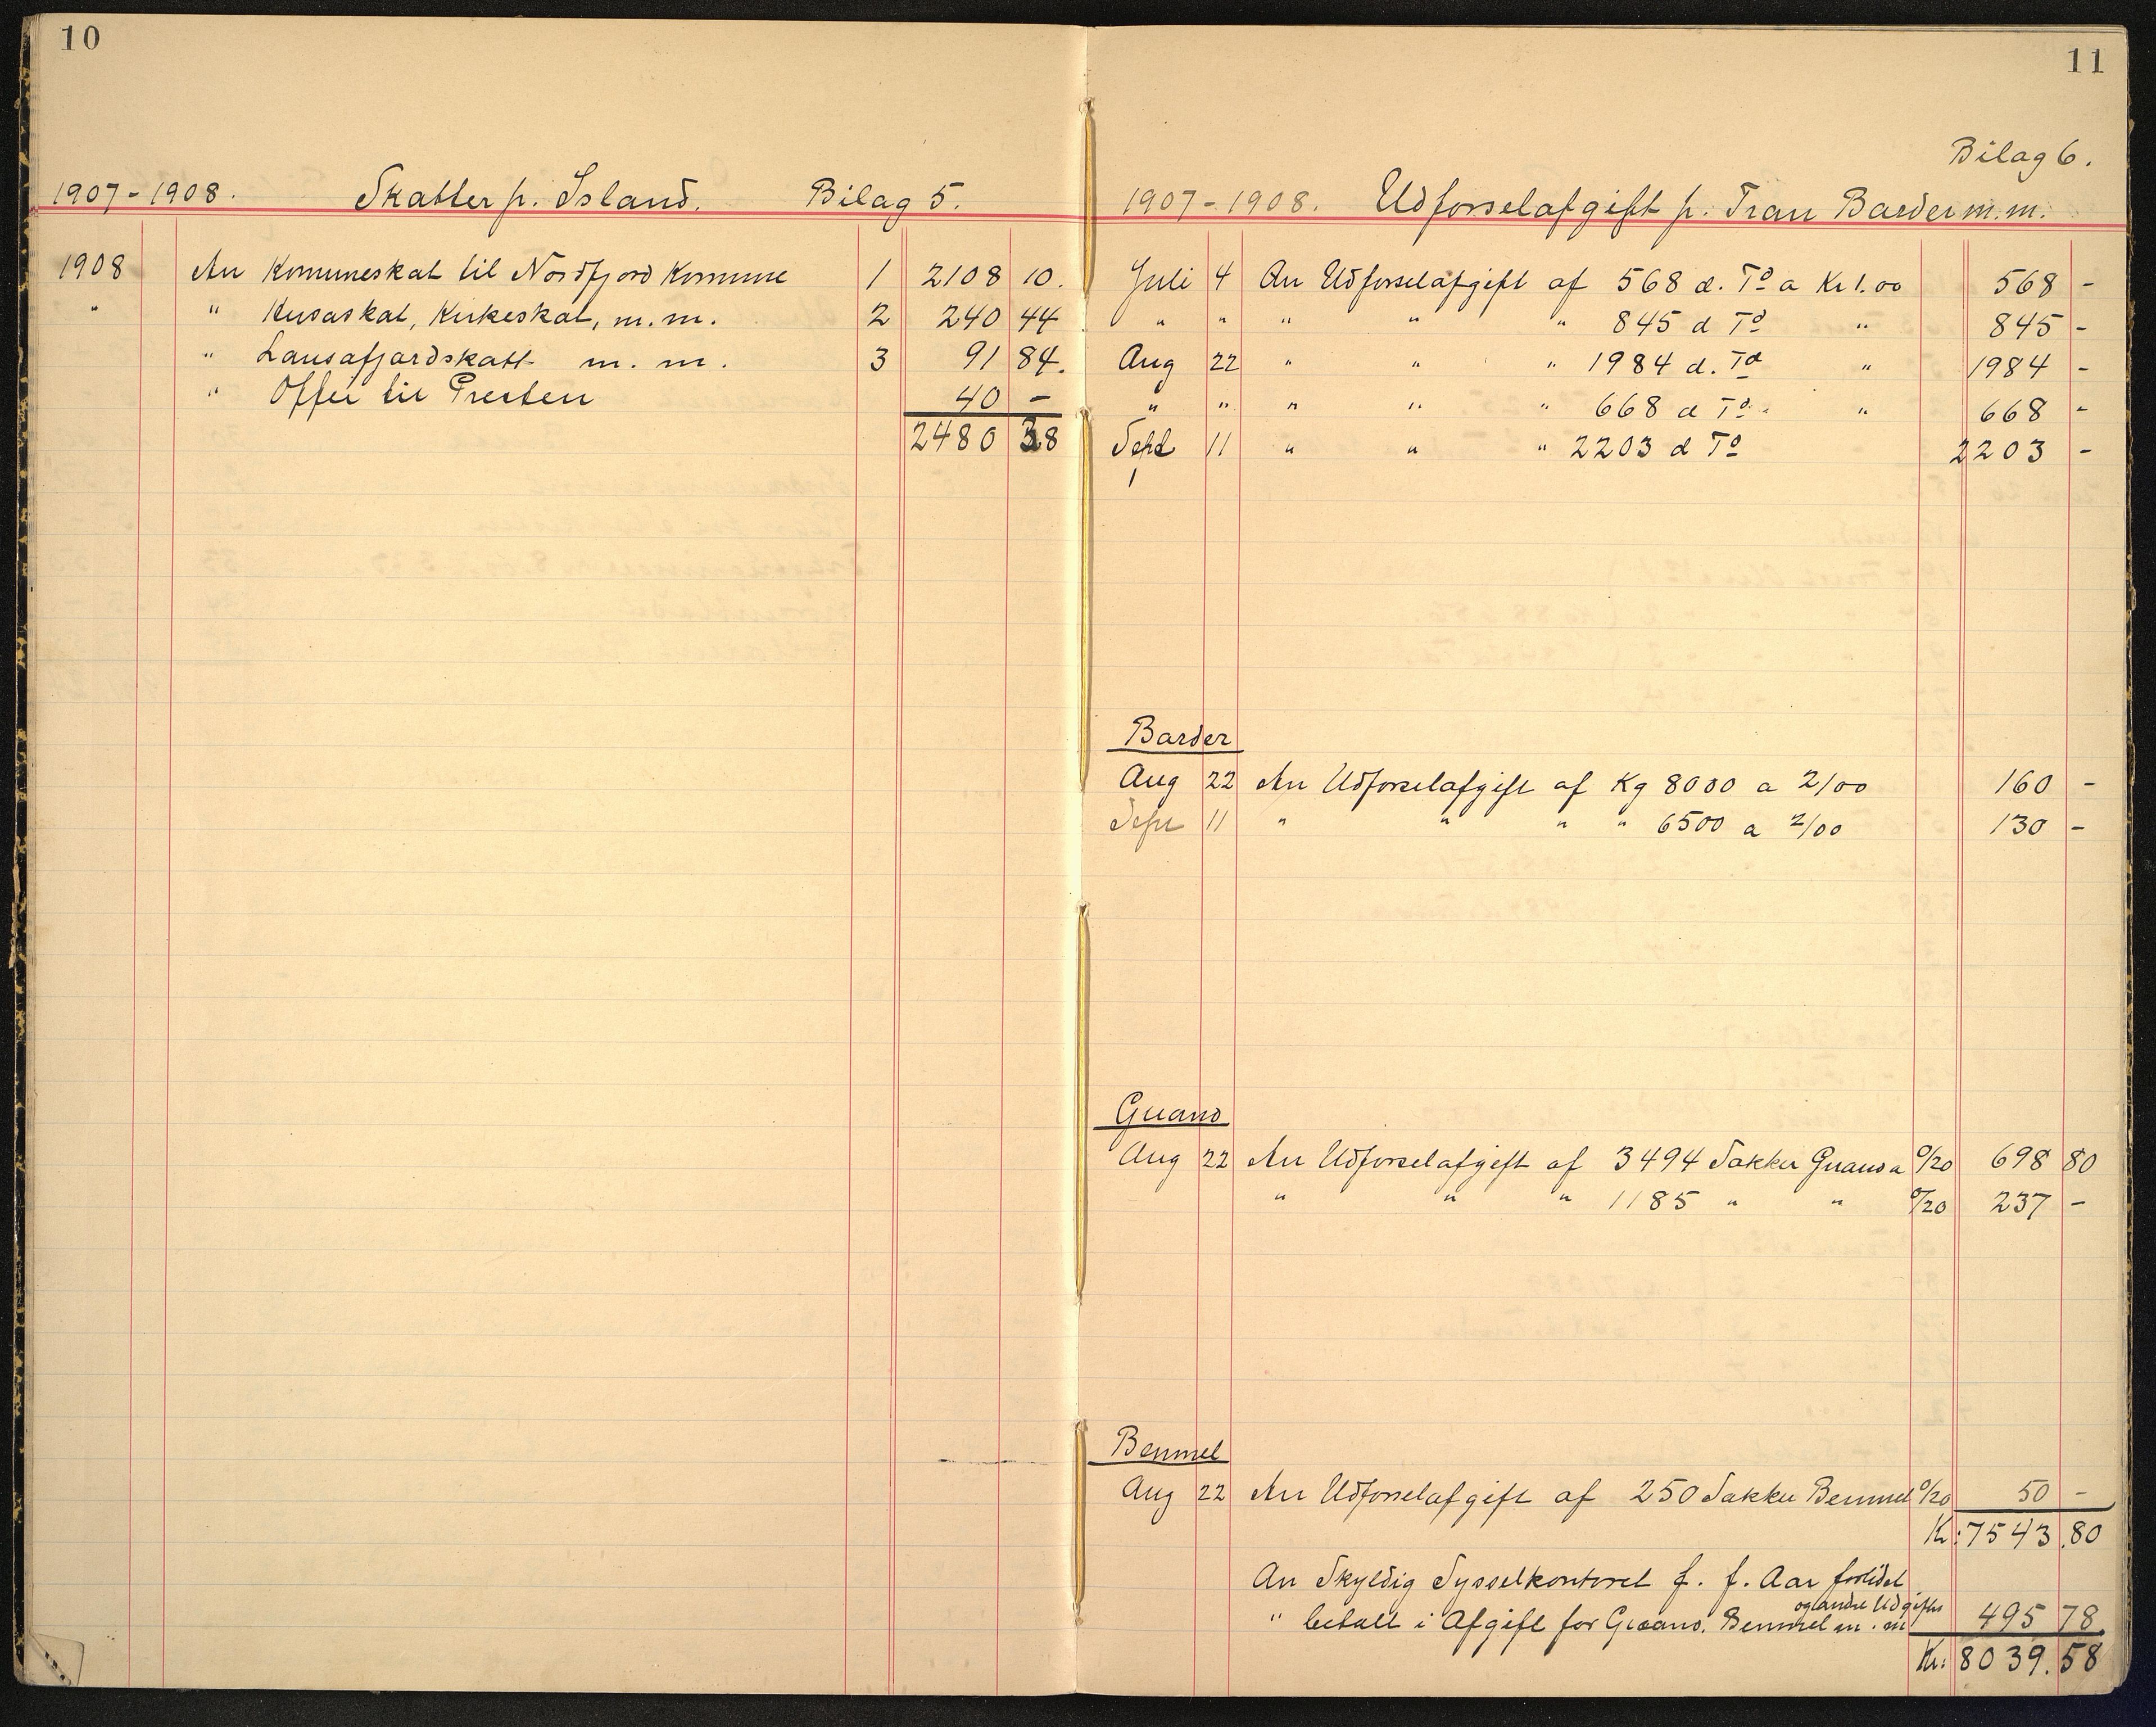 10
1907-1908. Skatter p. Island. Bilag 5.
1908 An Kommuneskat til Nordfjord Komune 1 2108 10.
" " Husaskat, Kirkeskat, m.m. 2 240 44
" Lausafjardskatt m. m. 3 91 84.
" Offer til Presten 40 -
2480 38
11
Bilag 6.
1907-1908. Udforselafgift p. Tran Barder m.m.
Juli 4 An Udforselafgift af 568 d. To a Kr 1.00 568 -
" " " " " 845 d To " 845 -
Aug 22 " " " 1984 d. To " 1984 -
" " " " " 668 d To " 668 -
Sept 11 " " " 2203 d To 2203 -
Barder
Aug 22 An Udforselafgift af Kg 8000 a 2/00 160 -
Sept 11 " " " " 6500 a 2/00 130 -
Guano
Aug 22 An Udforselafgift af 3494 Sakker Guano a 0/20 698 80
" " " 1185 " " 0/20 237 -
Benmel
Aug 22 An Udforselafgift af 250 Sakker Benmel 0/20 50 -
Kr: 7543.80
An Skyldig Sysselkontoret f. f. Aar forlidet
og andre Udgifter
" betalt i Afgift for Guano, Benmel m. m 495 78
Kr: 8039.58